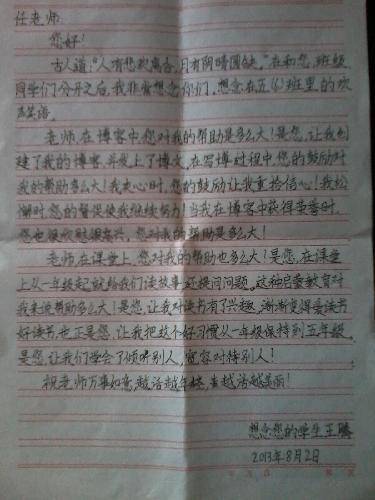 任老师
您好！
古人道："人有悲欢离合，月有阴晴圆缺。"在和您、班级
同学们分开之后，我非常想念你们，想念在五（6）班里的欢
声笑语。
老师，在博客中，您对我的帮助是多么大！是您，让我创
建了我的博客，并爱上了博文，在写博过程中您的鼓励对
我的帮助多么大！我灰心时，您的鼓励让我重拾信心！我松
懈时，您的督促使我继续努力！当我在博客中获得荣誉时，
您也极力祝贺，您对我的帮助是多么大！
老师，在课堂上，您对我的帮助也多么大！是您，在课堂
上从一年级起就给我们读故事，还提问问题，这种启蒙教育对
我来说帮助多么大！是您，让我对读书有了兴趣，渐渐变得爱读书
好读书，也正是您，让我把这个好习惯从一年级保持到五年级。
是您，让我们学会了倾听别人，宽容对待别人！
祝老师万事如意，越活越年轻，越活越美丽！
想念您的学生王腾
2013年8月2日